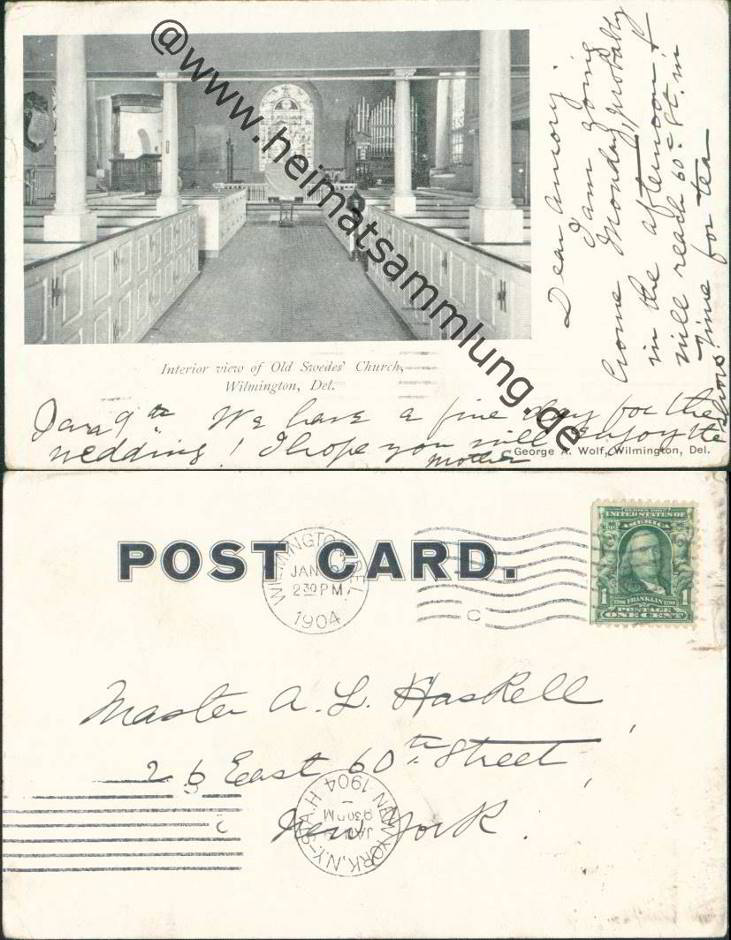 @www.heimatsammlung.de
Dear Amory.
I am going
home Monday probably
in the afternoon &
will reach 60th St. in
time for tea
Interior view of Old Swedes' Church,
Wilmington, Del.
Jan 9th We have a fine day for the
wedding! I hope you will enjoy the
Mother
George A. Wolf, Wilmington, Del.
POST CARD.
WILMINGTON, DEL.
JAN
2 30 PM
1904
C
UNITED STATES OF
AMERICA
FRANKLIN
1 1
POSTAGE
ONE CENT
Master A. L. Haskell
26 East 60th Street,
New York.
NEW YORK, N.Y.
JAN
9 30 PM
1904